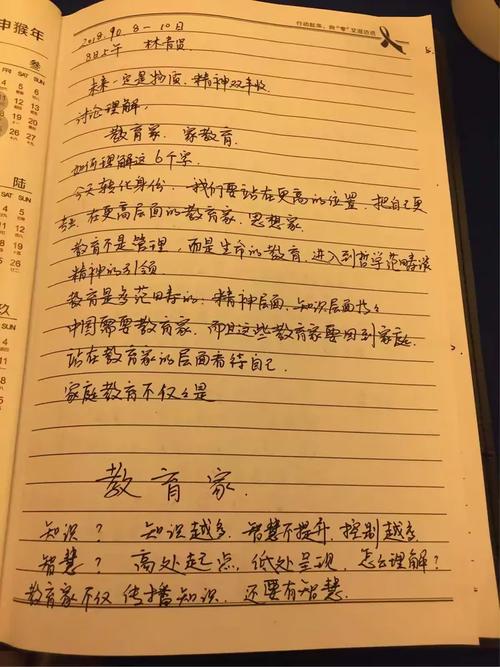 申猴年
叁
FRI SAT SUN
陆
SAT SUN
玖
SUN
行动起来，向“零”艾滋迈进
2018.9 8-10日
8日上午 林青贤
未来一定是物质、精神双丰收
讨论理解，
教育家、家教育
如何理解这6个字
今天转化身份，我们要站在更高的位置，把自己更
在更高层面的教育家、思想家
教育不是管理，而是生命的教育，进入到哲学范畴谈
精神的引领
教育是多范畴的：精神层面、知识层面
中国需要教育家，而且这些教育家要回到家庭
站在教育家的层面看待自己
家庭教育不仅仅是
教育家
知识？ 知识越多，智慧不提升，控制越多
智慧？ 高处起点，低处呈现，怎么理解？
教育家不仅传播知识，还要有智慧